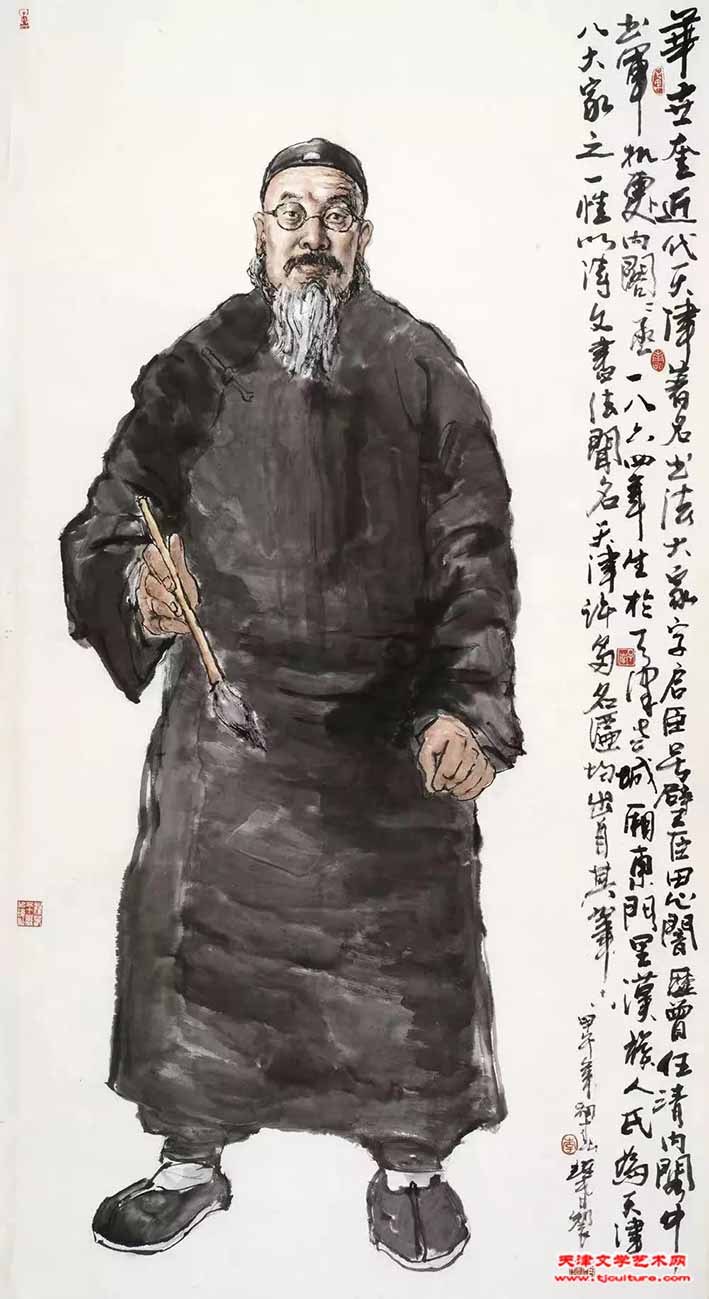 華世奎近代天津著名书法大家字启臣号璧臣思闇歷曾任清内閣中
书軍机處内閣閣丞一八六四年生於天津老城厢東門里漢族人氏為天津
八大家之一惟以诗文書法聞名天津许多名匾均出自其筆
甲午年初春
天津文学艺术网
www.tjculture.com